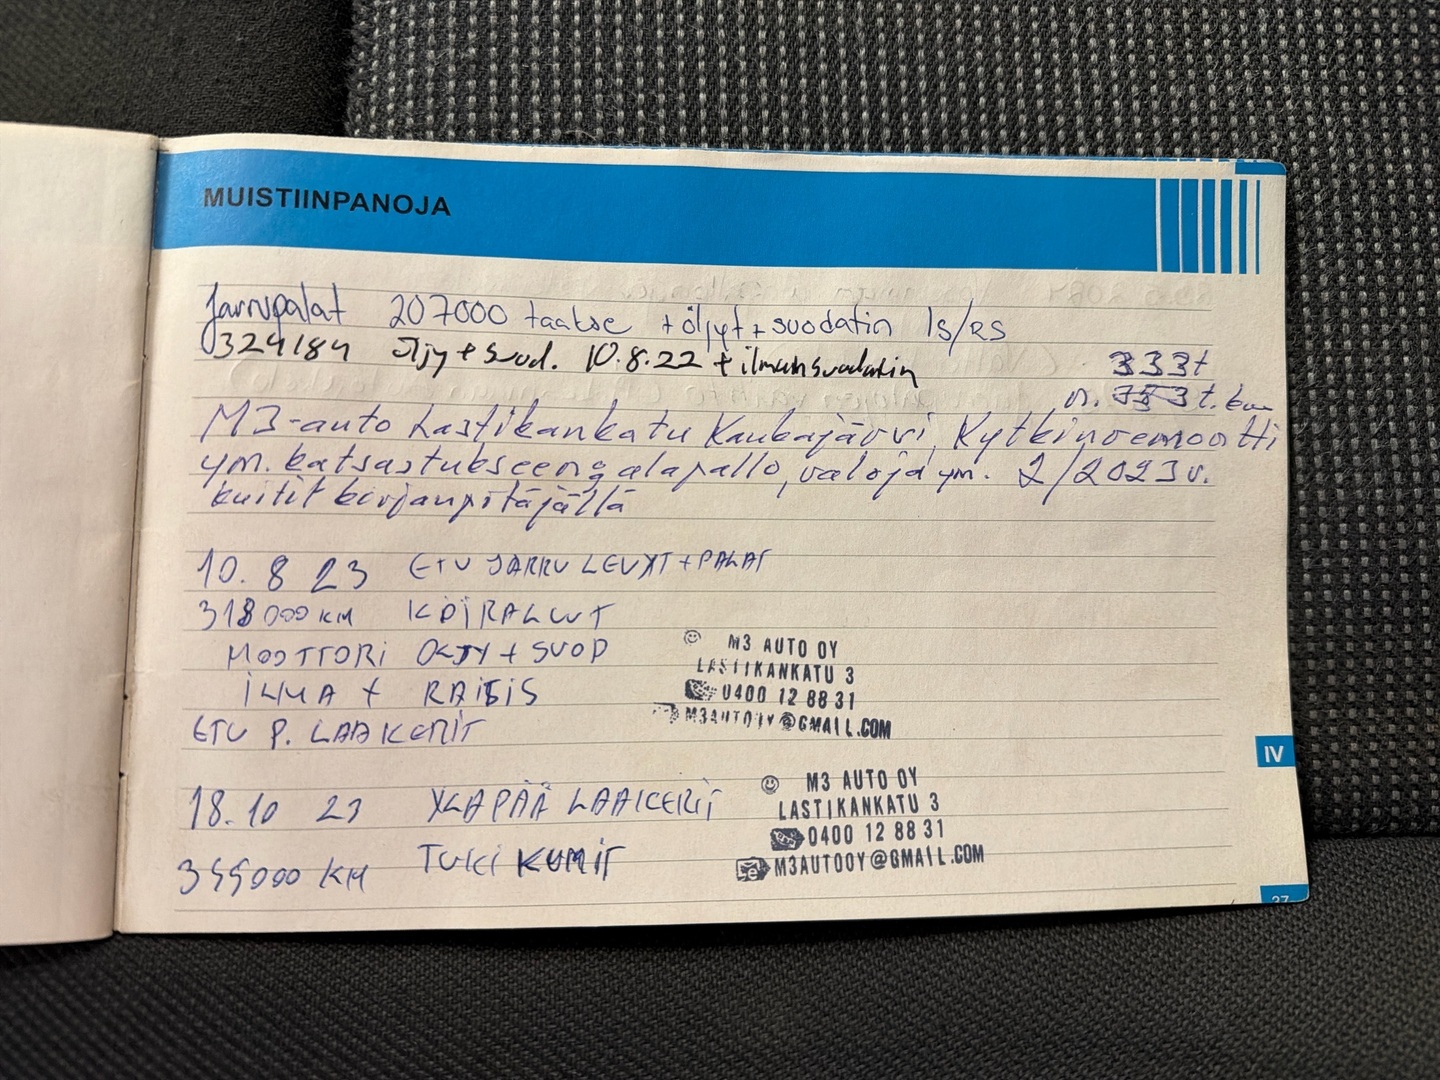 MUISTIINPANOJA
Jarrupalat 207000 taakse + öljyt + suodatin IS/RS
324184 öljy + suod. 10.8.22 + ilmansuodatin
333t
n. 333 t. km
M3-auto Lastikankatu Kaukajärvi, Kytkinremontti
ym. katsastukseen, alapallo, valoja ym. 2/2023 v.
kuitit kirjanpitäjällä
10. 8 23 ETU JARRU LEVYT + PALAT
318000 KM KOIRALUUT
MOOTTORI OLJY + SUOD
ILMA + RAITIS
ETU P. LAAKERIT
M3 AUTO OY
LASTIKANKATU 3
0400 12 88 31
M3AUTOOY@GMAIL.COM
18.10 23 YLÄPÄÄ LAAKERIT
355000 KM TUKI KUMIT
M3 AUTO OY
LASTIKANKATU 3
0400 12 88 31
M3AUTOOY@GMAIL.COM
IV
37